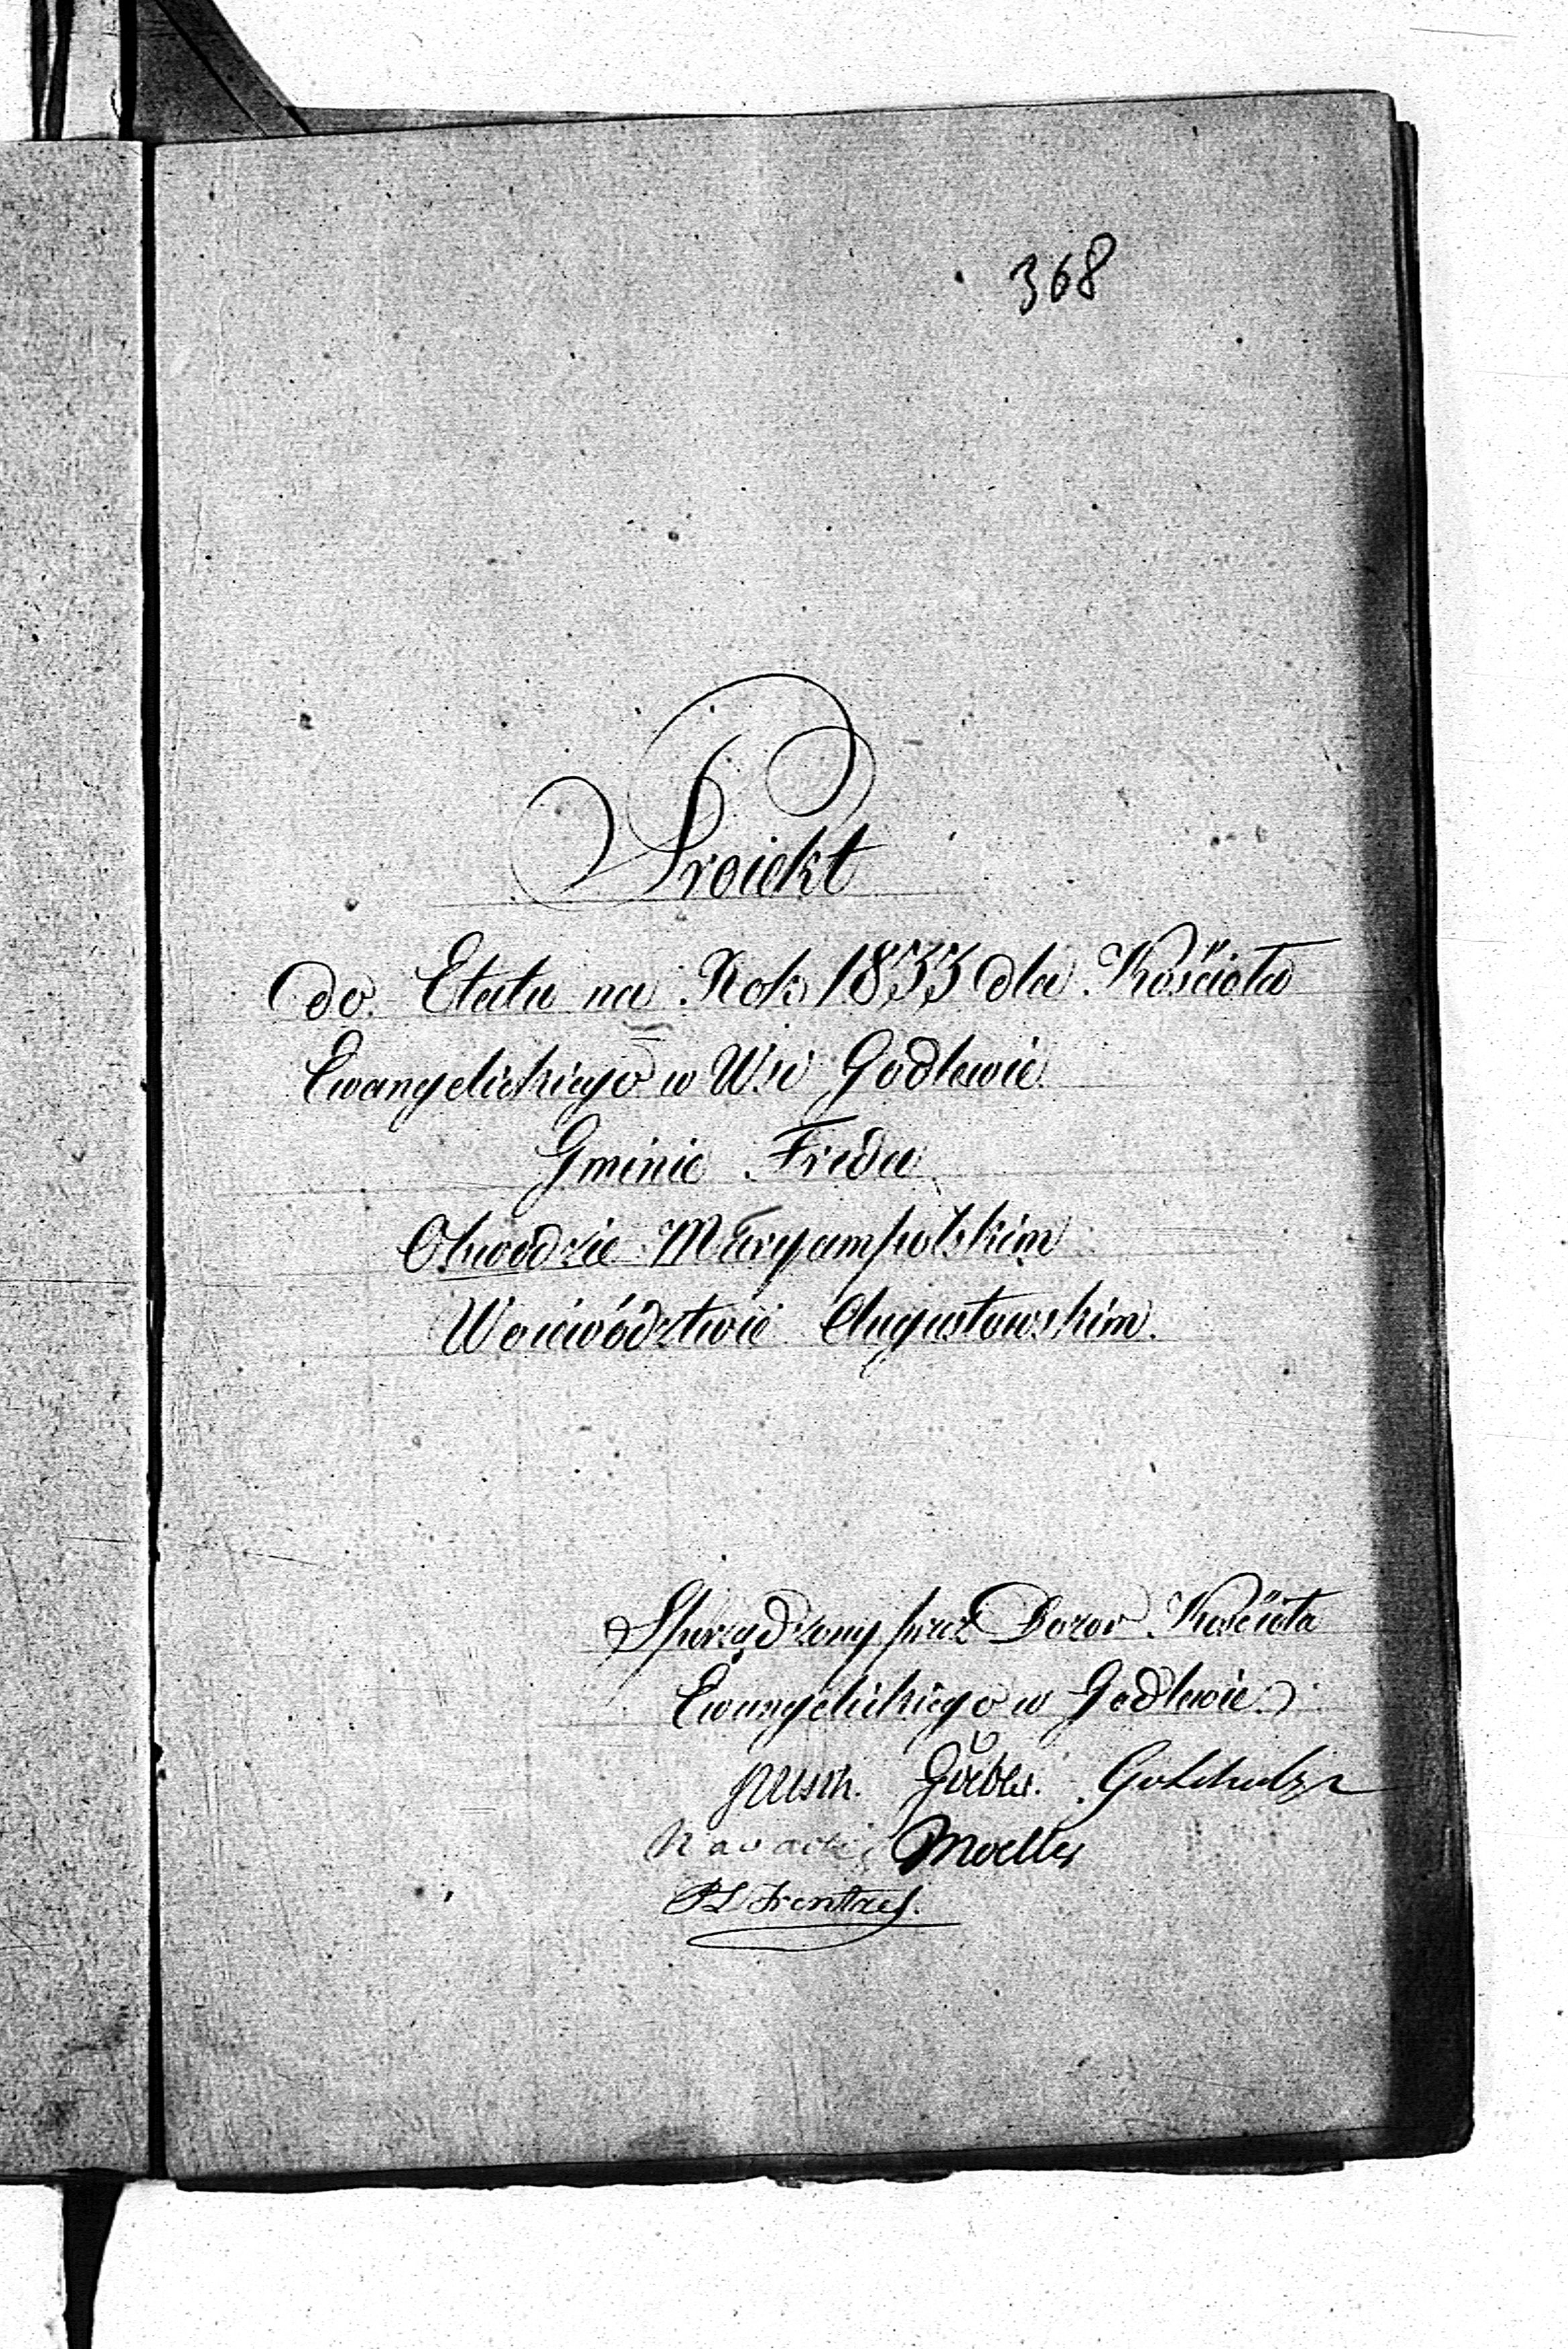 368
Proiekt
do Etatu na Rok 1833 dla Kościoła
Ewangelickiego w Wsi Godlewie
Gminie Freda
Obwodzie Maryampolskim
Woiewództwie Augustowskim.
Sporządzony przez Dozor Kościoła
Ewangelickiego w Godlewie
Moeller